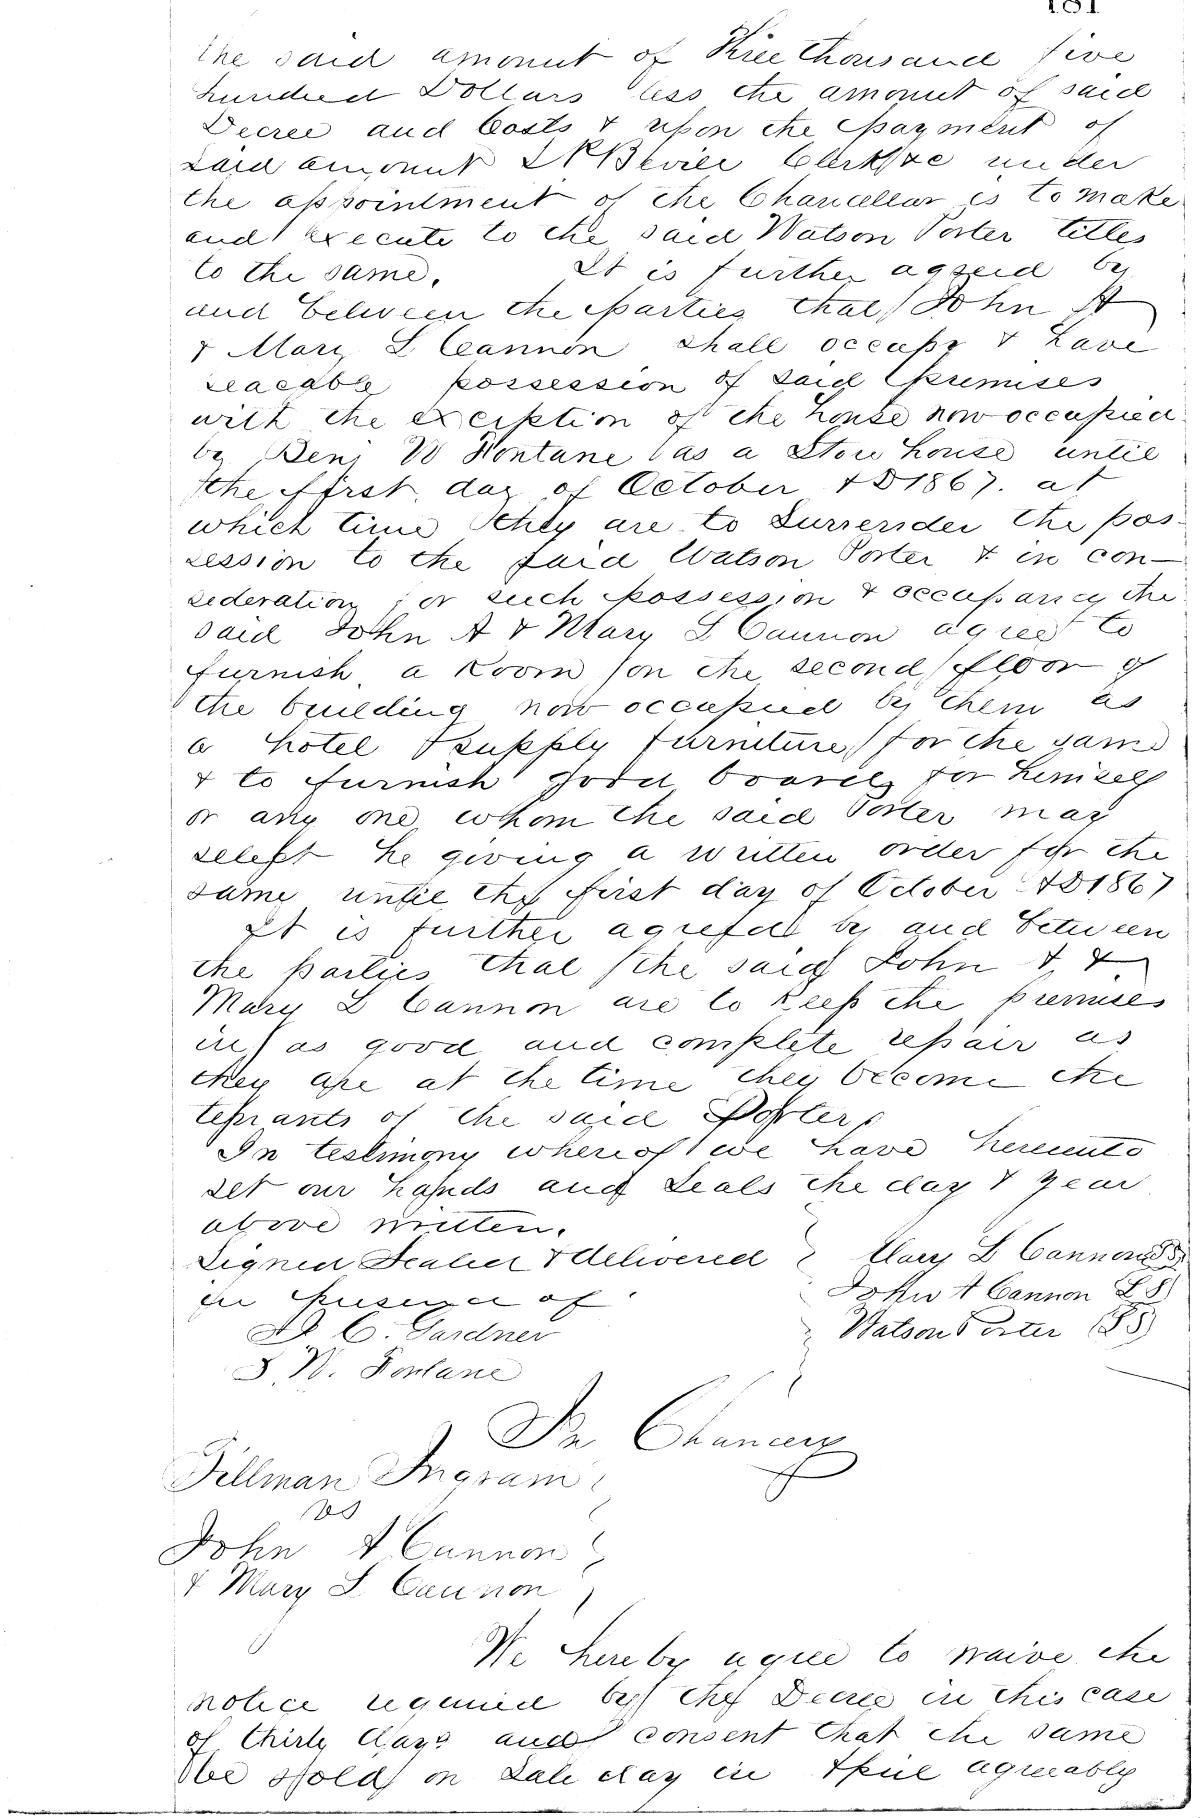 181
the said amount of Three thousand five
hundred Dollars less the amount of said
Decree and Costs & upon the payment of
said amount Clerk &c under
the appointment of the Chancellor is to make
and execute to the said Watson Porter titles
to the same. It is further agreed by
and between the parties that John A
& Mary L Cannon shall occupy & have
peacable possession of said premises
with the exception of the house now occupied
by Benj W Fontane as a Store house until
the first day of October AD 1867. at
which time they are to Surrender the pos-
session to the said Watson Porter & in con-
sideration for such possession & occupancy the
said John A & Mary L Cannon agree to
furnish a Room on the second floor of
the building now occupied by them as
a hotel & supply furniture for the same
& to furnish good board for himself
or any one whom the said Porter may
select he giving a written order for the
same until the first day of October AD 1867
It is further agreed by and between
the parties that the said John A &
Mary L Cannon are to keep the premises
in as good and complete repair as
they are at the time they become the
tenants of the said Porter.
In testimony whereof we have hereunto
set our hands and Seals the day & year
above written.
Signed Sealed & delivered Mary L Cannon LS
in presence of John A Cannon LS
C. Gardner Watson Porter LS
W. Fontane
In Chancery
Tillman Ingram
vs
John A Cannon
& Mary L Cannon
We hereby agree to waive the
notice required by the Decree in this case
of thirty days and consent that the same
be sold on Sale day in April agreeably